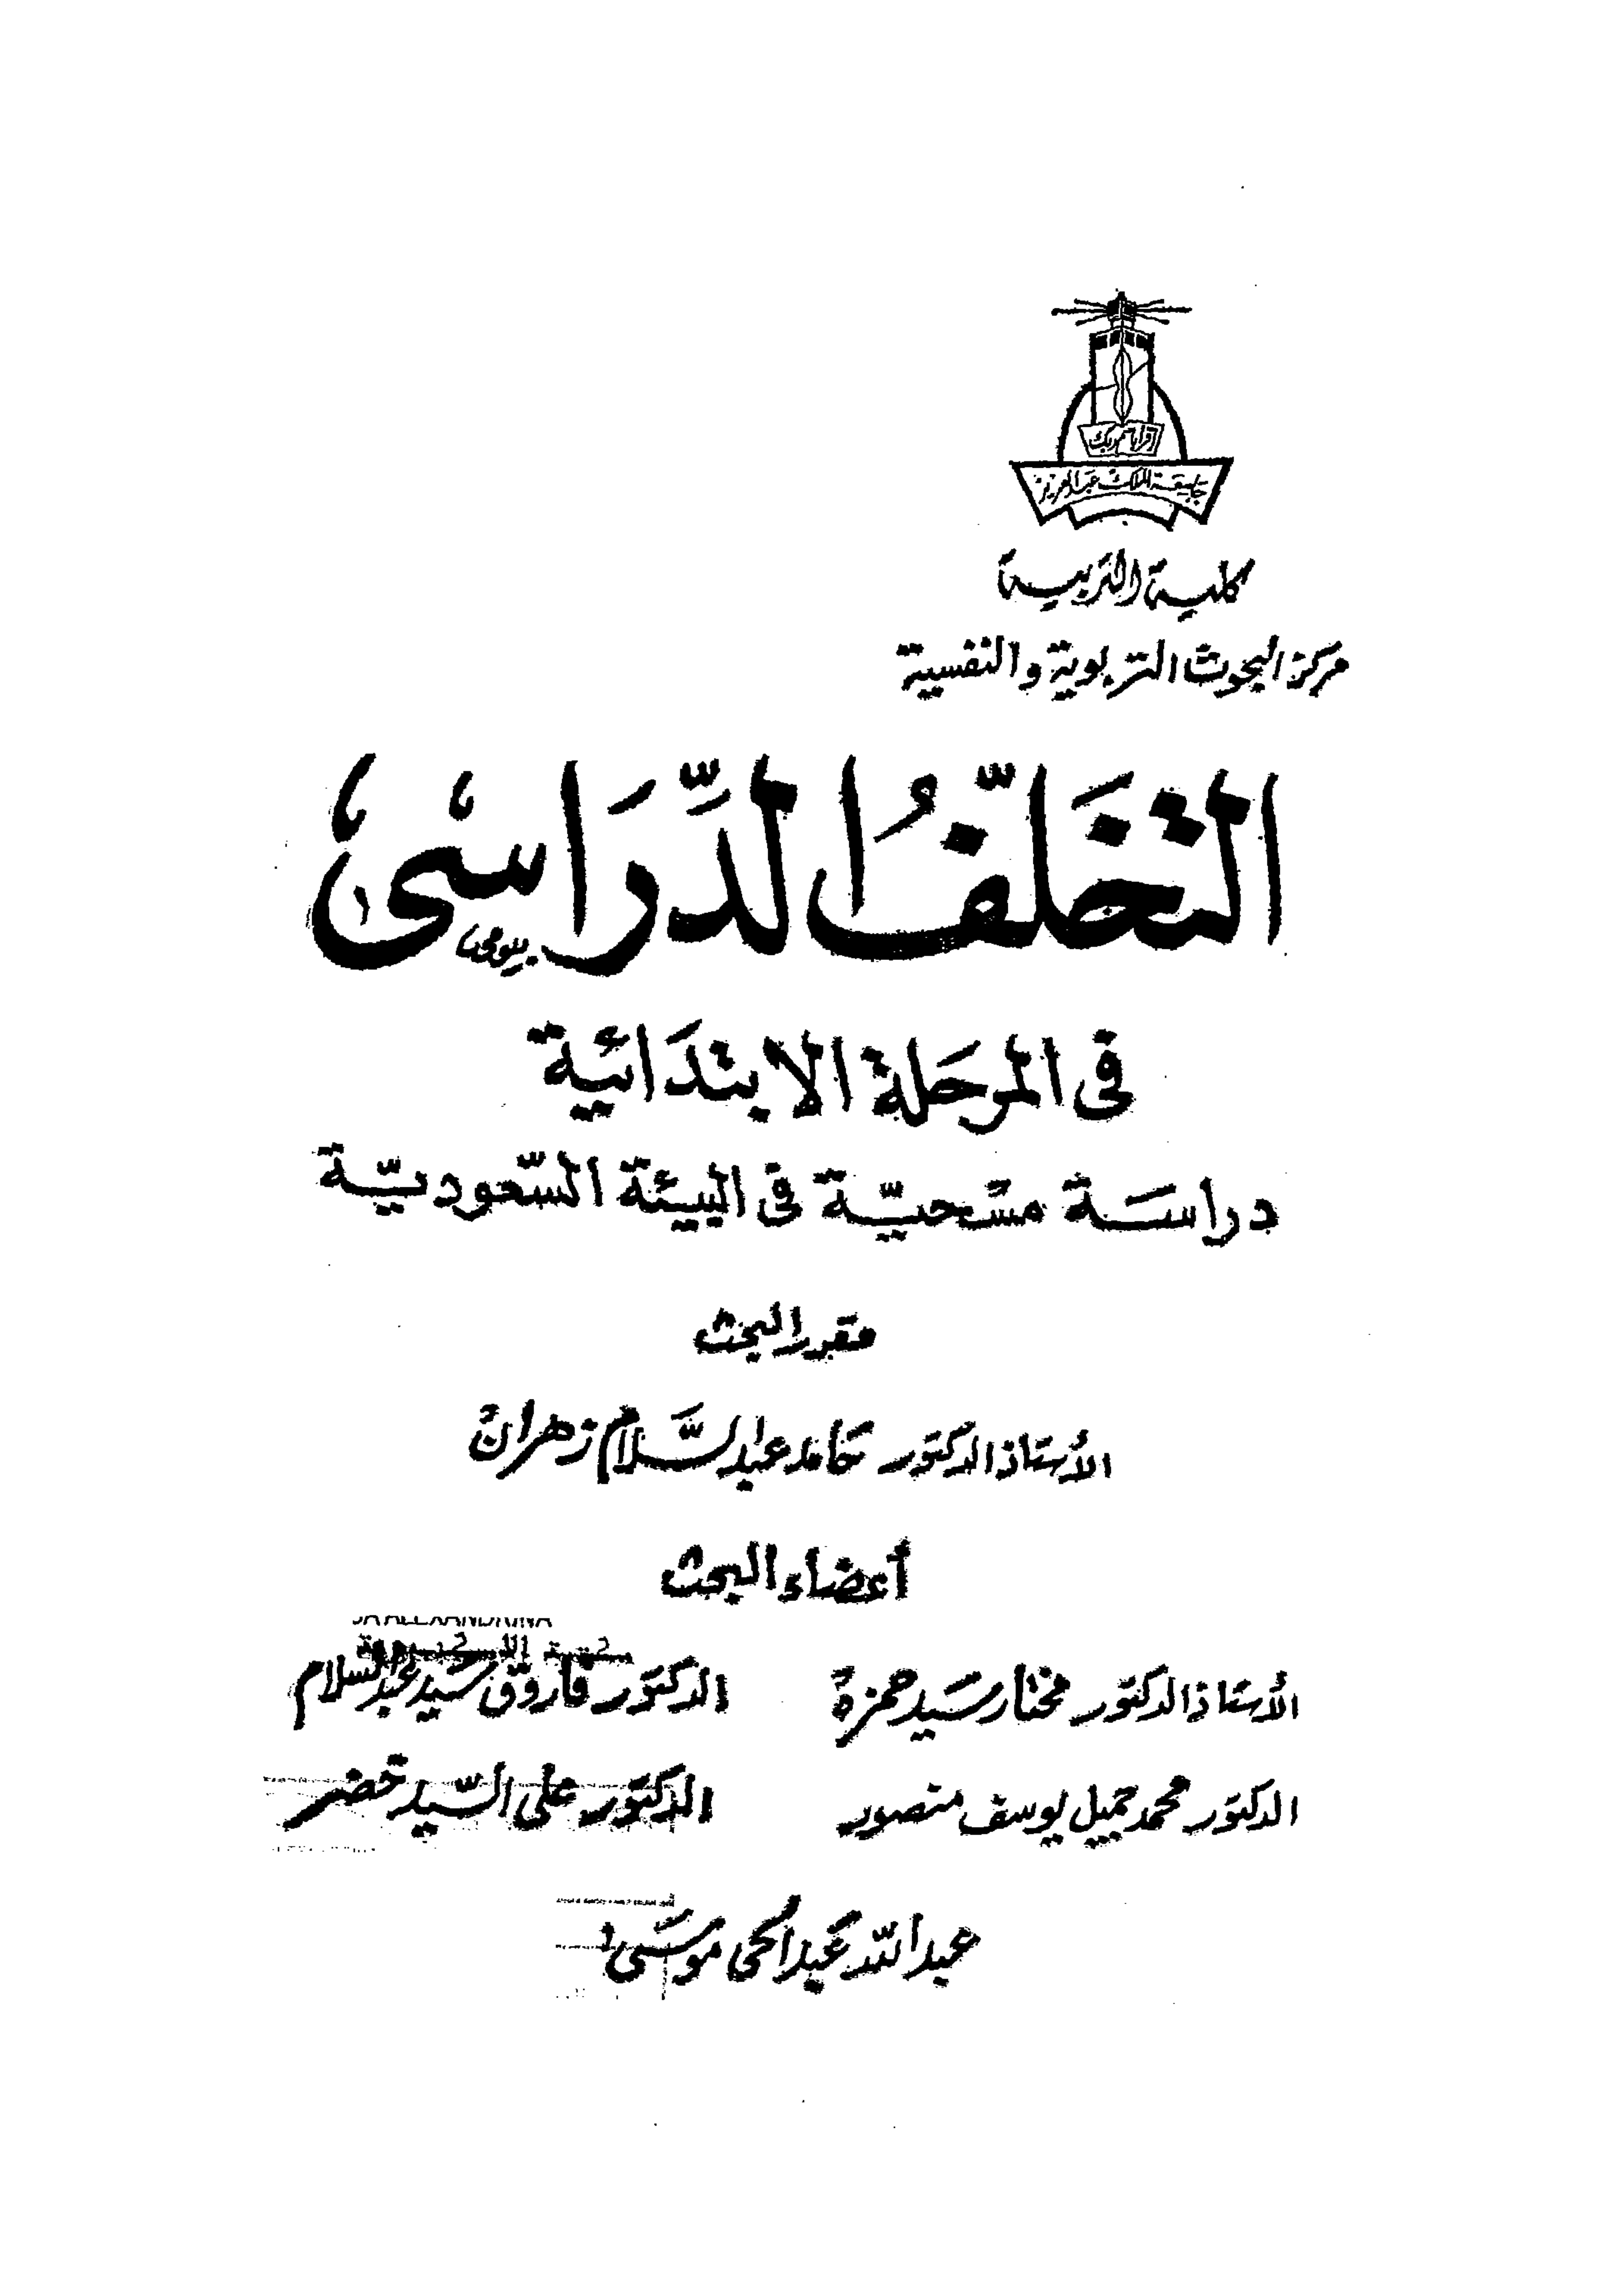 اقرأ باسم ربك
جامعة الملك عبد العزيز
كلية التربية
مركز البحوث التربوية والنفسية
التخلّفُ الدِّرَاسى
بيومى
فى المرحَلة الابتدَائية
دراسَة مسْحيّة فى البيئة السّعوديّة
مقرر البحث
الأستاذ الدكتور حامد عبد السَّلام زهران
أعضاء البحث
الأستاذ الدكتور مختار سَيد حمزة
الدكتور فاروق سَيد عبد السلام
الدكتور محمد جميل يوسف منصور
الدكتور على السّيد خضر
عبد اللّه عَبد الحى موسَى